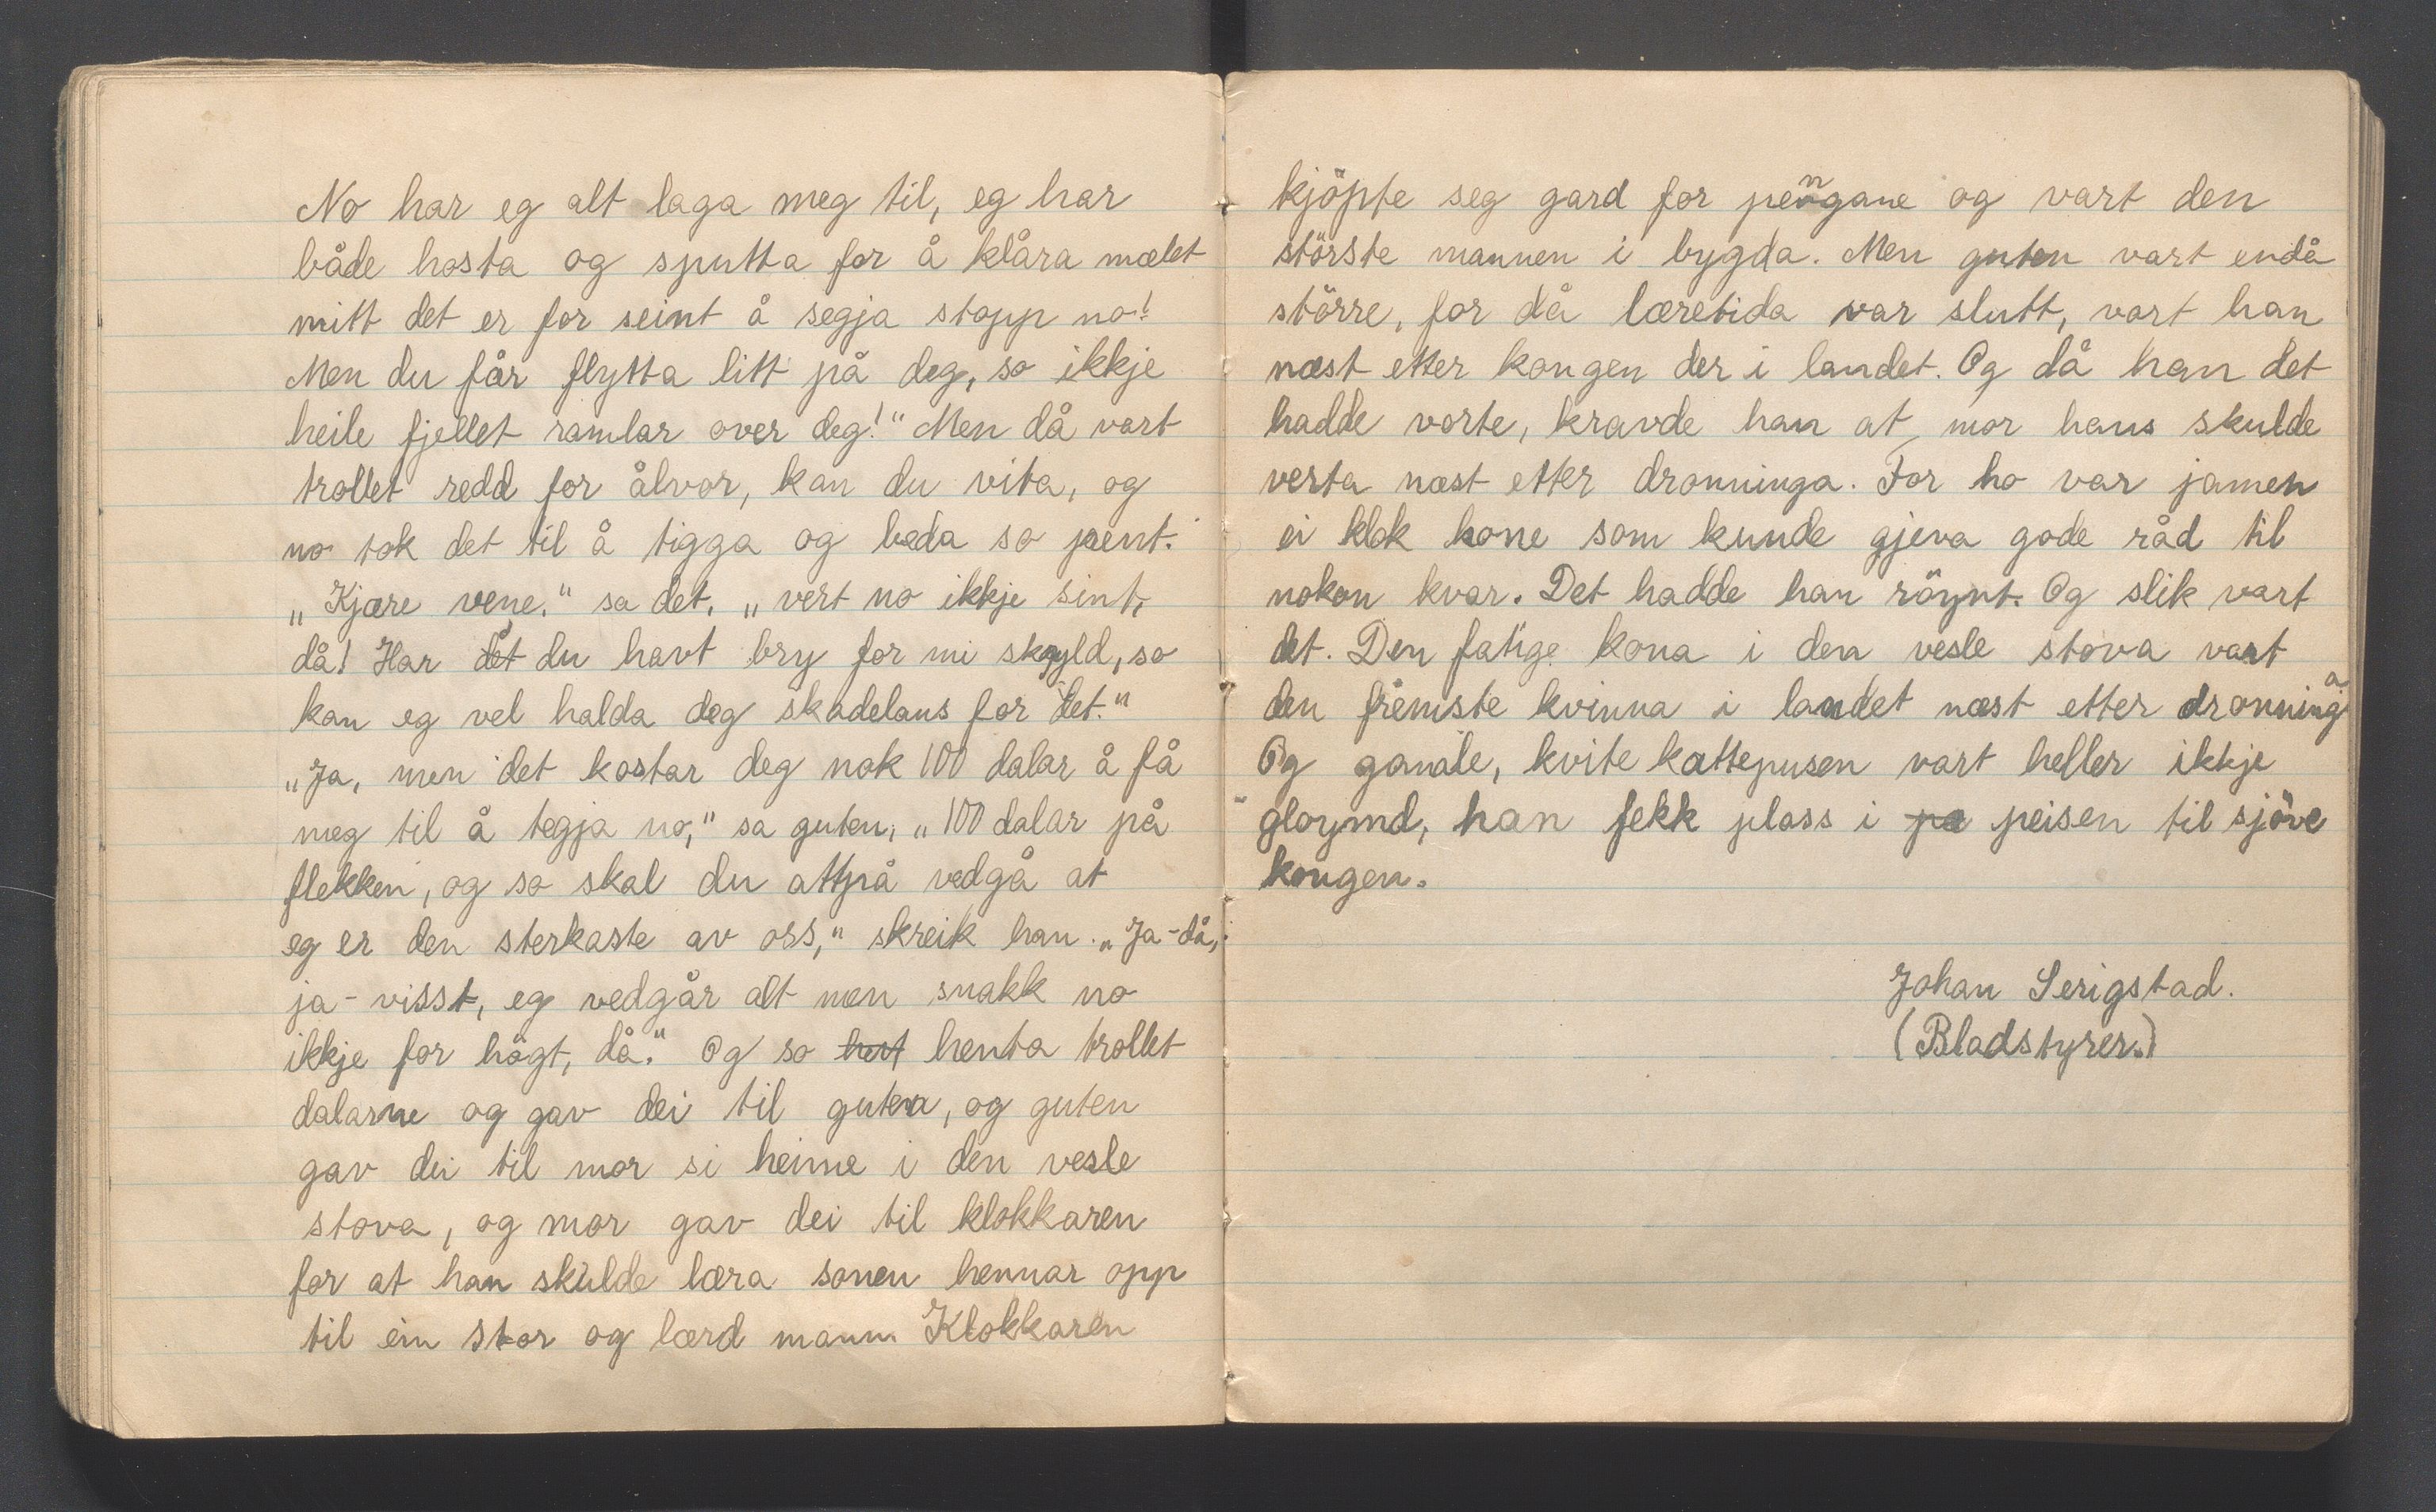 No har eg alt laga meg til, eg har
både hosta og sputta for å klåra mælet
mitt det er for seint å segja stopp no!
Men du får flytta litt på deg, so ikkje
heile fjellet ramlar over deg!" Men då vart
trollet redd for ålvor, kan du vita, og
no tok det til å tigga og beda so pent.
„Kjære vene," sa det, „vert no ikkje sint,
då! Har det du havt bry for mi skyld, so
kan eg vel halda deg skadelaus for det."
„Ja, men det kostar deg nok 100 dalar å få
meg til å tegja no," sa guten, „100 dalar på
flekken, og so skal du attpå vedgå at
eg er den sterkaste av oss," skreik han. „Ja-då,
ja-visst, eg vedgår alt men snakk no
ikkje for högt, då." Og so hest henta trollet
dalarne og gav dei til guten, og guten
gav dei til mor si heime i den vesle
stova, og mor gav dei til klokkaren
for at han skulde læra sonen hennar opp
til ein stor og lærd mann Klokkaren
kjöpte seg gard for pengane og vart den
störste mannen i bygda. Men guten vart endå
större, for då læretida var slutt, vart han
næst etter kongen der i landet. Og då han det
hadde vorte, kravde han at mor hans skulde
verta næst etter dronninga. For ho var jamen
ei klok kone som kunde gjeva gode råd til
nokon kvar. Det hadde han röynt. Og slik vart
det. Den fatige kona i den vesle stova vart
den fremste kvinna i landet næst etter dronninga
Og gamale, kvite kattepusen vart heller ikkje
gloymd, han fekk plass i pa peisen til sjöve
kongen.
Johan Serigstad.
(Bladstyrer.)